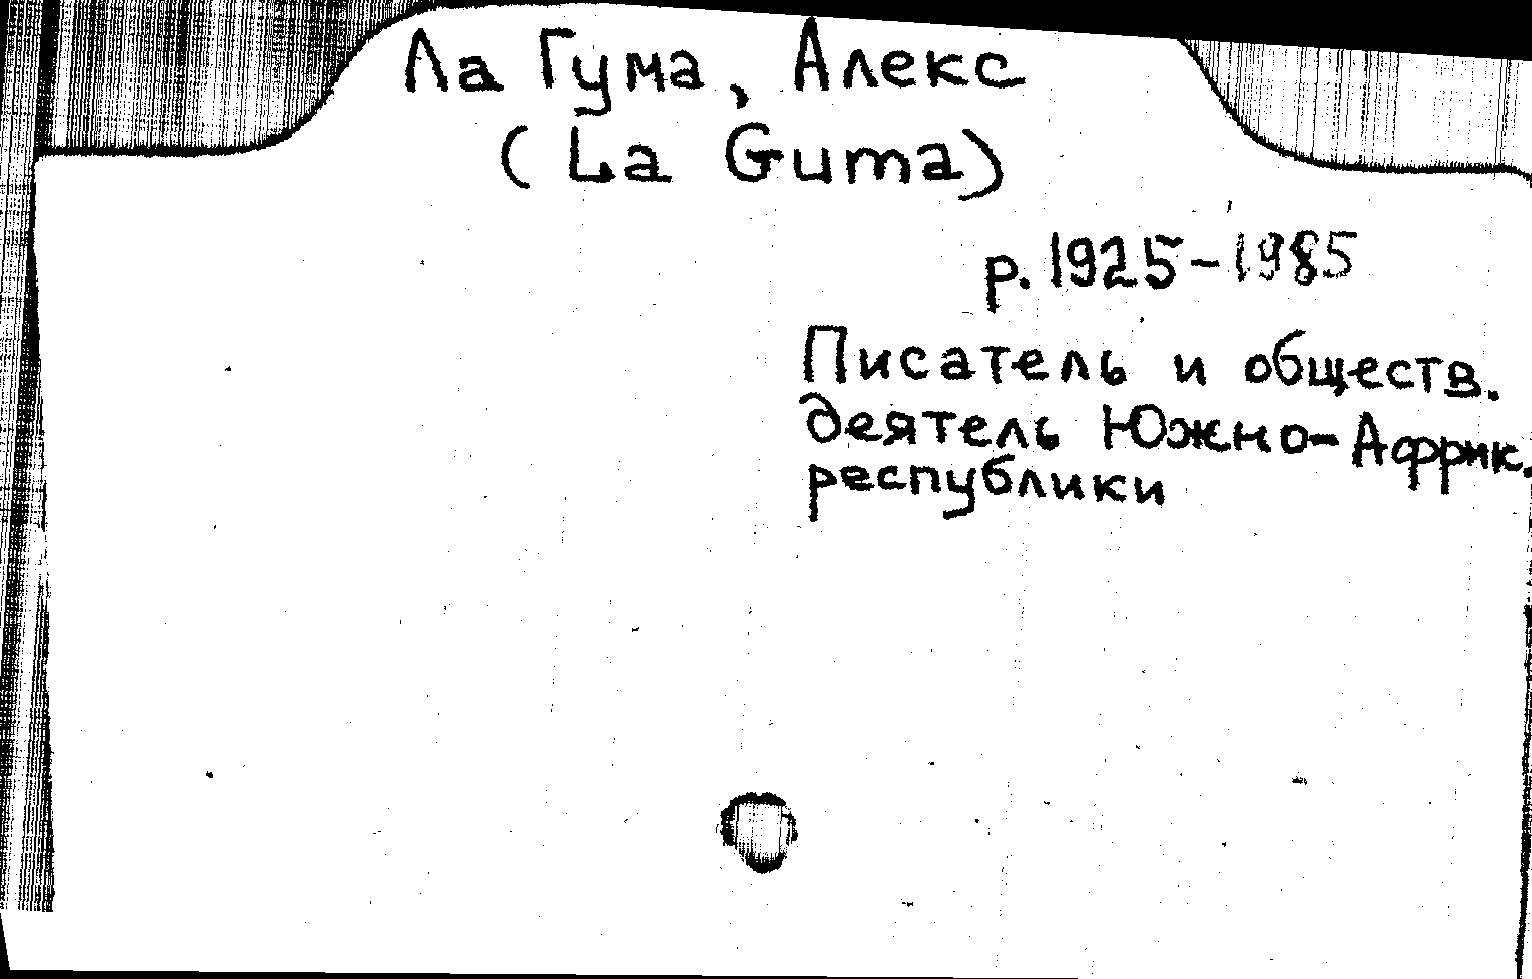 Ла Гума, Алекс
(La Guma)
р. 1925-1985
Писатель и обществ.
деятель Южно-Африк.
республики